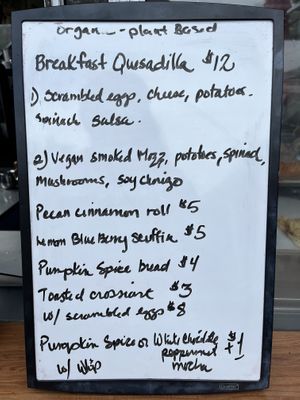 organ - Plant Based
Breakfast Quesadilla $12
1) Scrambled eggs, cheese, potatoes.
Spinach Salsa.
2) Vegan smoked Mozz, potatoes, spinach,
Mushrooms, Soy Chorizo
Pecan cinnamon roll $5
Lemon Blue Berry Scuffin $5
Pumpkin Spice bread $4
Toasted crossiant $3
w/ scrambled eggs $8
Pumpkin Spice or White Chocolate
peppermint + $1
w/ Whip mocha